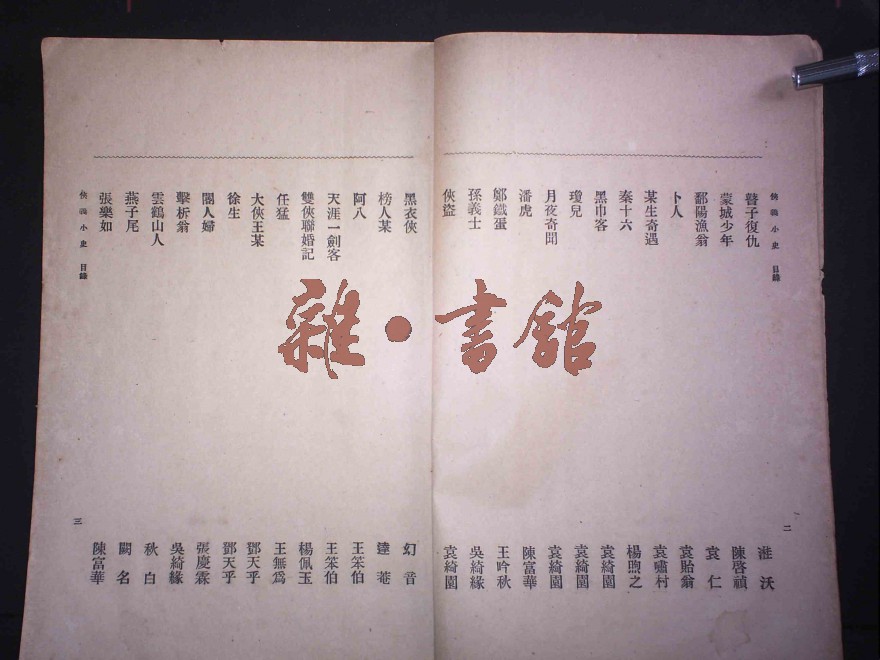 俠義小史 目錄 二
瞽子復仇 淮沃
蒙城少年 陳啓禎
鄱陽漁翁 袁仁
卜人 袁貽翁
某生奇遇 袁嘯村
秦十六 楊煦之
黑巾客 袁綺園
瓊兒 袁綺園
月夜奇聞 袁綺園
潘虎 陳富華
鄭鐵蛋 王吟秋
孫義士 吳綺緣
俠盜 袁綺園
黑衣俠 幻音
榜人某 達菴
阿八 王笨伯
天涯一劍客 王笨伯
雙俠聯婚記 楊佩玉
任猛 王無爲
大俠王某 鄧天乎
徐生 鄧天乎
閽人婦 張慶霖
擊柝翁 吳綺緣
雲鶴山人 秋白
燕子尾 闕名
張樂如 陳富華
俠義小史 目錄 三
雜·書館